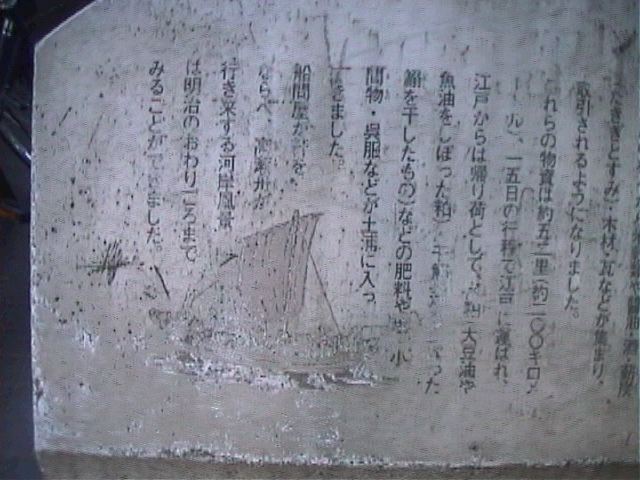 たきぎとすみ)・木材・瓦などが集まり、
取引されるようになりました。
れらの物資は約五二里(約二〇〇キロメ
ートル)、一五日の行程で江戸に運ばれ、
江戸からは帰り荷として、 粕 大豆油や
魚油をしぼった粕)・干鰯 った
鰯を干したもの)などの肥料や 小
間物・呉服などが土浦に入っ
てきました。
船問屋が軒を
ならべ、高瀬舟が
行き来する河岸風景
は明治のおわりごろまで
みることができました。